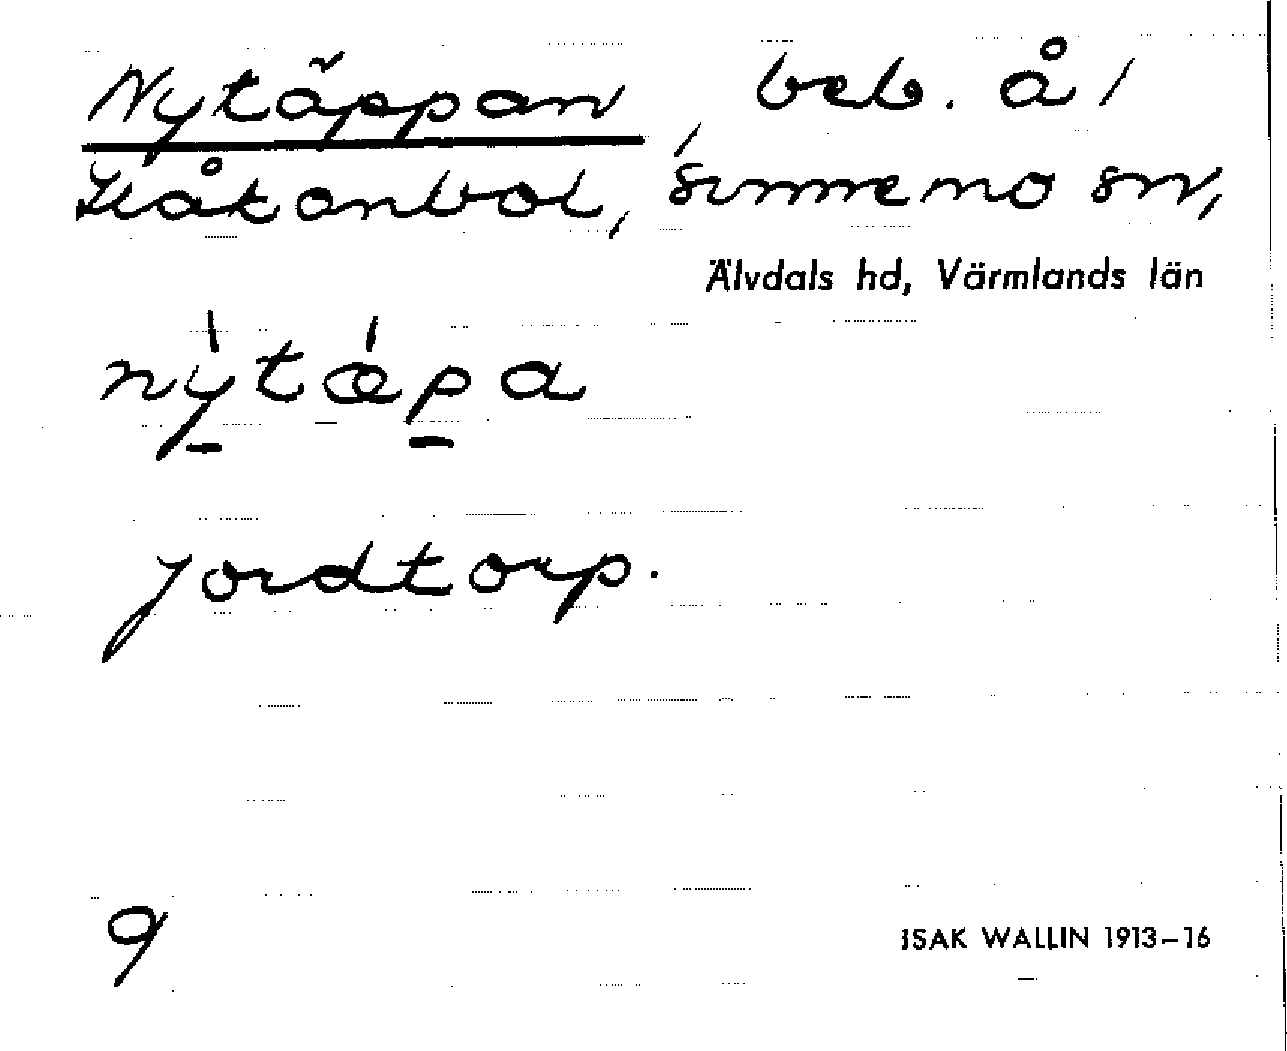 Nytäppan, beb. å /
Håkanbol, Sunnemo sn,
Älvdals hd, Värmlands län
nýtǽpa
jordtorp.
9
ISAK WALLIN 1913–16